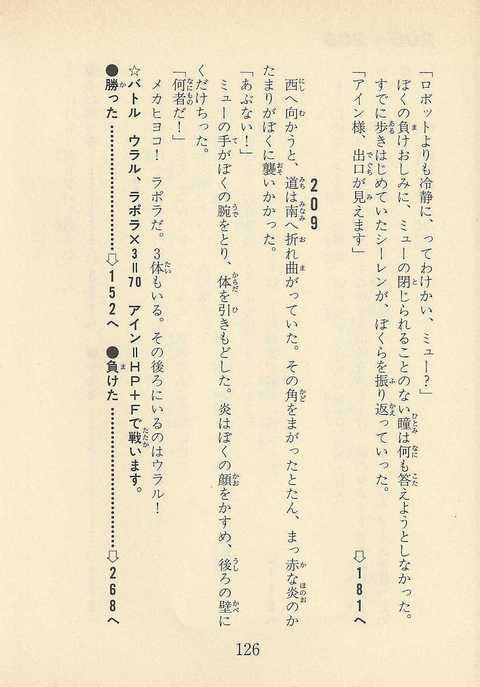 「ロボットよりも冷静に、ってわけかい、ミュー?」
ぼくの負けおしみに、ミューの閉じられることのない瞳は何も答えようとしなかった。
すでに歩きはじめていたシーレンが、ぼくらを振り返っていった。
「アイン様、出口が見えます」
⇨181へ
209
西へ向かうと、道は南へ折れ曲がっていた。その角をまがったとたん、まっ赤な炎のか
たまりがぼくに襲いかかった。
「あぶない!」
ミューの手がぼくの腕をとり、体を引きもどした。炎はぼくの顔をかすめ、後ろの壁に
くだけちった。
「何者だ!」
メカヒヨコ! ラポラだ。3体もいる。その後ろにいるのはウラル!
☆バトル ウラル、ラポラ×3=70 アイン=HP+Fで戦います。
●勝った……………⇨152へ ●負けた……………⇨268へ
126